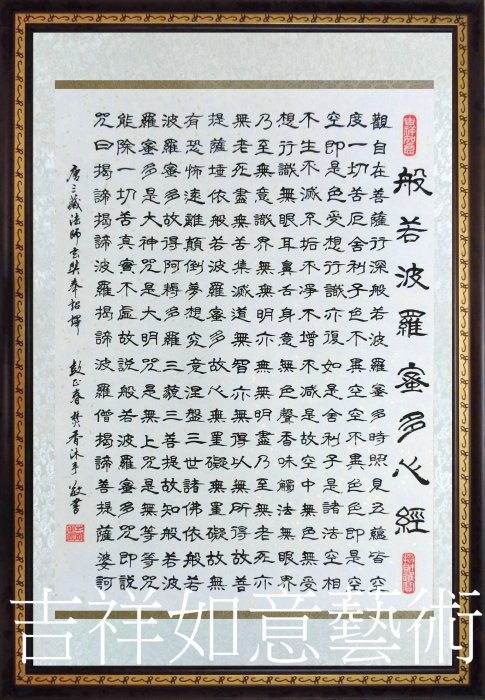 般若波羅蜜多心經
觀自在菩薩行深般若波羅蜜多時照見五蘊皆空
度一切苦厄舍利子色不異空空不異色色即是空
空即是色受想行識亦復如是舍利子是諸法空相
不生不滅不垢不淨不增不減是故空中無色無受
想行識無眼耳鼻舌身意無色聲香味觸法無眼界
乃至無意識界無無明亦無無明盡乃至無老死亦
無老死盡無苦集滅道無智亦無得以無所得故菩
提薩埵依般若波羅蜜多故心無罣礙無罣礙故無
有恐怖遠離顛倒夢想究竟涅盤三世諸佛依般若
波羅蜜多故得阿耨多羅三藐三菩提故知般若波
羅蜜多是大神咒是大明咒是無上咒是無等等咒
能除一切苦真實不虛故說般若波羅蜜多咒即說
咒曰揭諦揭諦波羅揭諦波羅僧揭諦菩提薩婆訶
唐三藏法師玄奘奉詔譯 彭正春焚香沐手敬書
吉祥如意
吉祥如意藝術